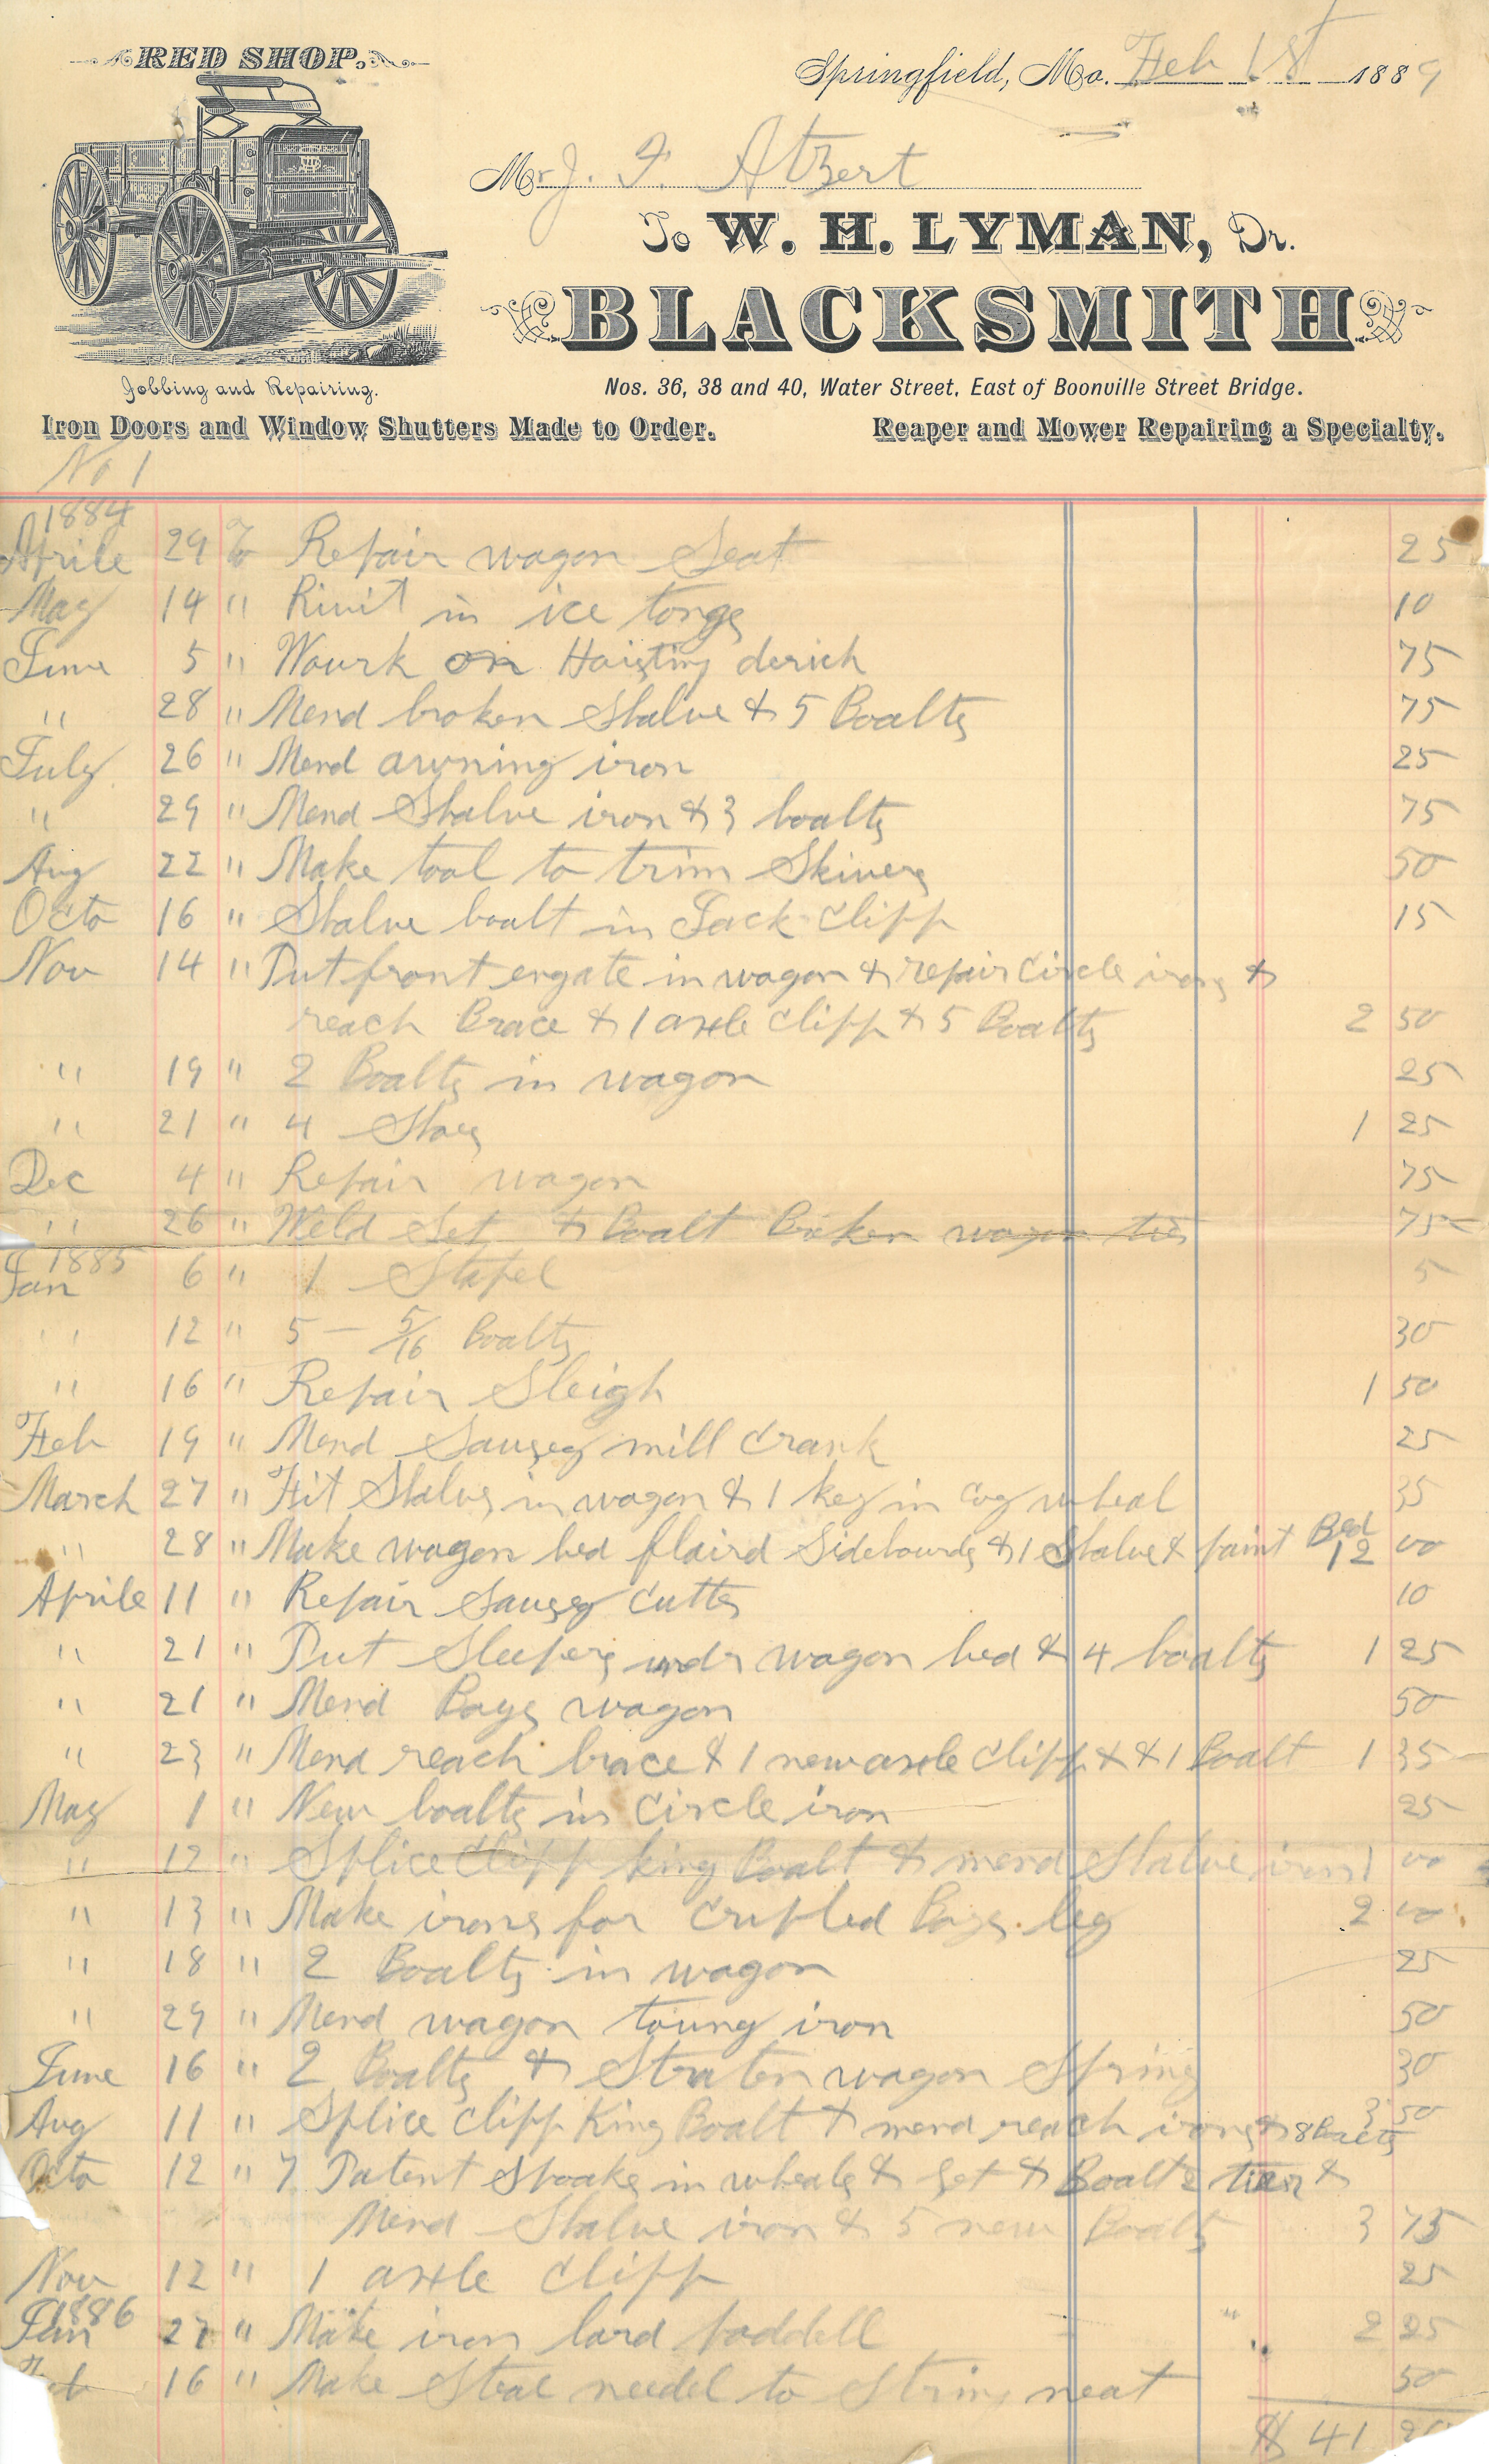 RED SHOP.
Springfield, Mo. Feb 1st 1889
Mr J. F. Atzert
To W. H. LYMAN, Dr.
BLACKSMITH
Jobbing and Repairing.
Nos. 36, 38 and 40, Water Street, East of Boonville Street Bridge.
Iron Doors and Window Shutters Made to Order.
Reaper and Mower Repairing a Specialty.
No 1
1884
Aprile 29 To Repair wagon Seat 25
May 14 " Rivit in ice tongs 10
June 5 " Wourk on Hoisting derich 75
" 28 " Mend broken Stalve & 5 Boalts 75
July 26 " Mend awning iron 25
" 29 " Mend Stalve iron & 3 boalts 75
Aug 22 " Make tool to trim Skivers 50
Octo 16 " Stalve boalt in Jack Clipp 15
Nov 14 " Put front engate in wagon & repair Circle irons &
reach Brace & 1 axle Clipp & 5 Boalts 2 50
" 19 " 2 Boalts in wagon 25
" 21 " 4 Shoes 1 25
Dec 4 " Repair wagon 75
" 26 " Weld Set & Boalt Broken wagon tier 75
1885
Jan 6 " 1 Stapel 5
" 12 " 5 - 5/16 Boalts 30
" 16 " Repair Sleigh 1 50
Feb 19 " Mend Sauseg mill Crank 25
March 27 " Fit Stalvs in wagon & 1 key in Cog wheal 35
" 28 " Make wagon bed flaird Sidebourds & 1 Stalve & paint Bed 12 00
Aprile 11 " Repair Sauseg Cutter 10
" 21 " Put Sleepers undr wagon bed & 4 boalts 1 25
" 21 " Mend Boys wagon 50
" 23 " Mend reach brace & 1 new axle Clipp & & 1 Boalt 1 35
May 1 " New boalts in Circle iron 25
" 12 " Splice Clipp king Boalt & mend Stalve iron 1 00
" 13 " Make irons for Cripled Boys leg 2 00
" 18 " 2 Boalts in wagon 25
" 29 " Mend wagon toung iron 50
June 16 " 2 Boalts & Straten wagon Spring 30
Aug 11 " Splice Clipp King Boalt & mend reach irons & 8 Boalts 3 50
Octo 12 " 7 Patent Spoaks in wheals & Set & Boalt 2 tiers &
Mend Stalve iron & 5 new Boalts 3 75
Nov 12 " 1 axle Clipp 25
1886
Jan 27 " Make iron lard paddell 2 25
Feb 16 " Make Steal needel to String meat 50
$ 41